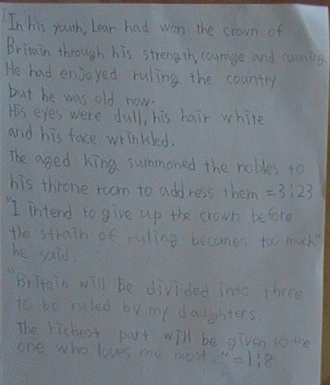 "In his youth, Lear had won the crown of
Britain through his strength, courage and cunning.
He had enjoyed ruling the country
but he was old now.
His eyes were dull, his hair white
and his face wrinkled.
The aged king summoned the nobles to
his throne room to address them =3:23
"I intend to give up the crown before
the strain of ruling becomes too much"
he said.
"Britain will be divided into three
to be ruled by my daughters.
The richest part will be given to the
one who loves me most." =1:8